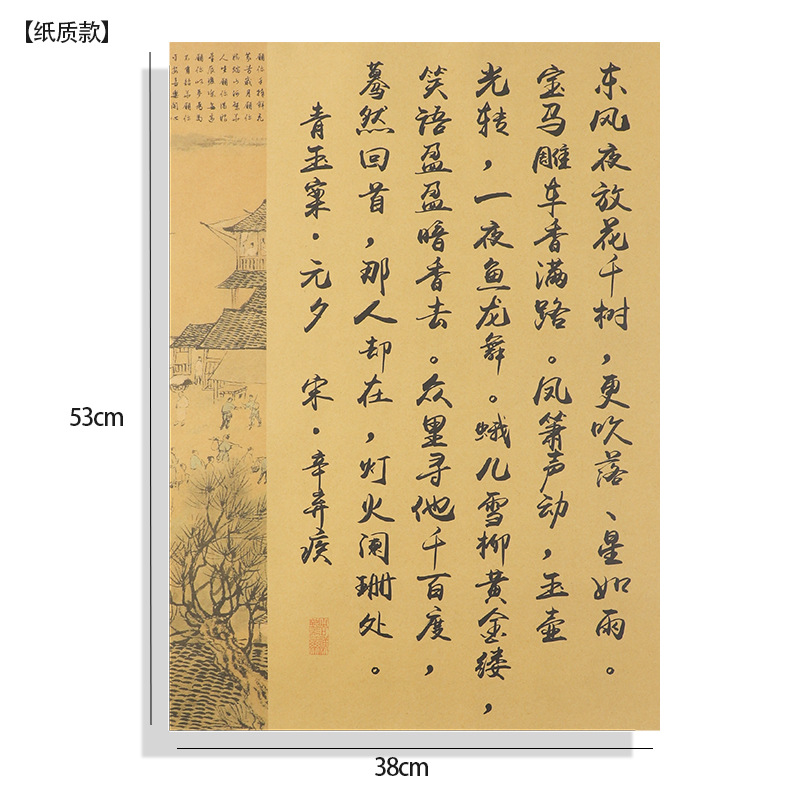 【纸质款】
东风夜放花千树，更吹落、星如雨。
宝马雕车香满路。凤箫声动，玉壶
光转，一夜鱼龙舞。蛾儿雪柳黄金缕，
笑语盈盈暗香去。众里寻他千百度，
蓦然回首，那人却在，灯火阑珊处。
青玉案·元夕 宋·辛弃疾
53cm
38cm